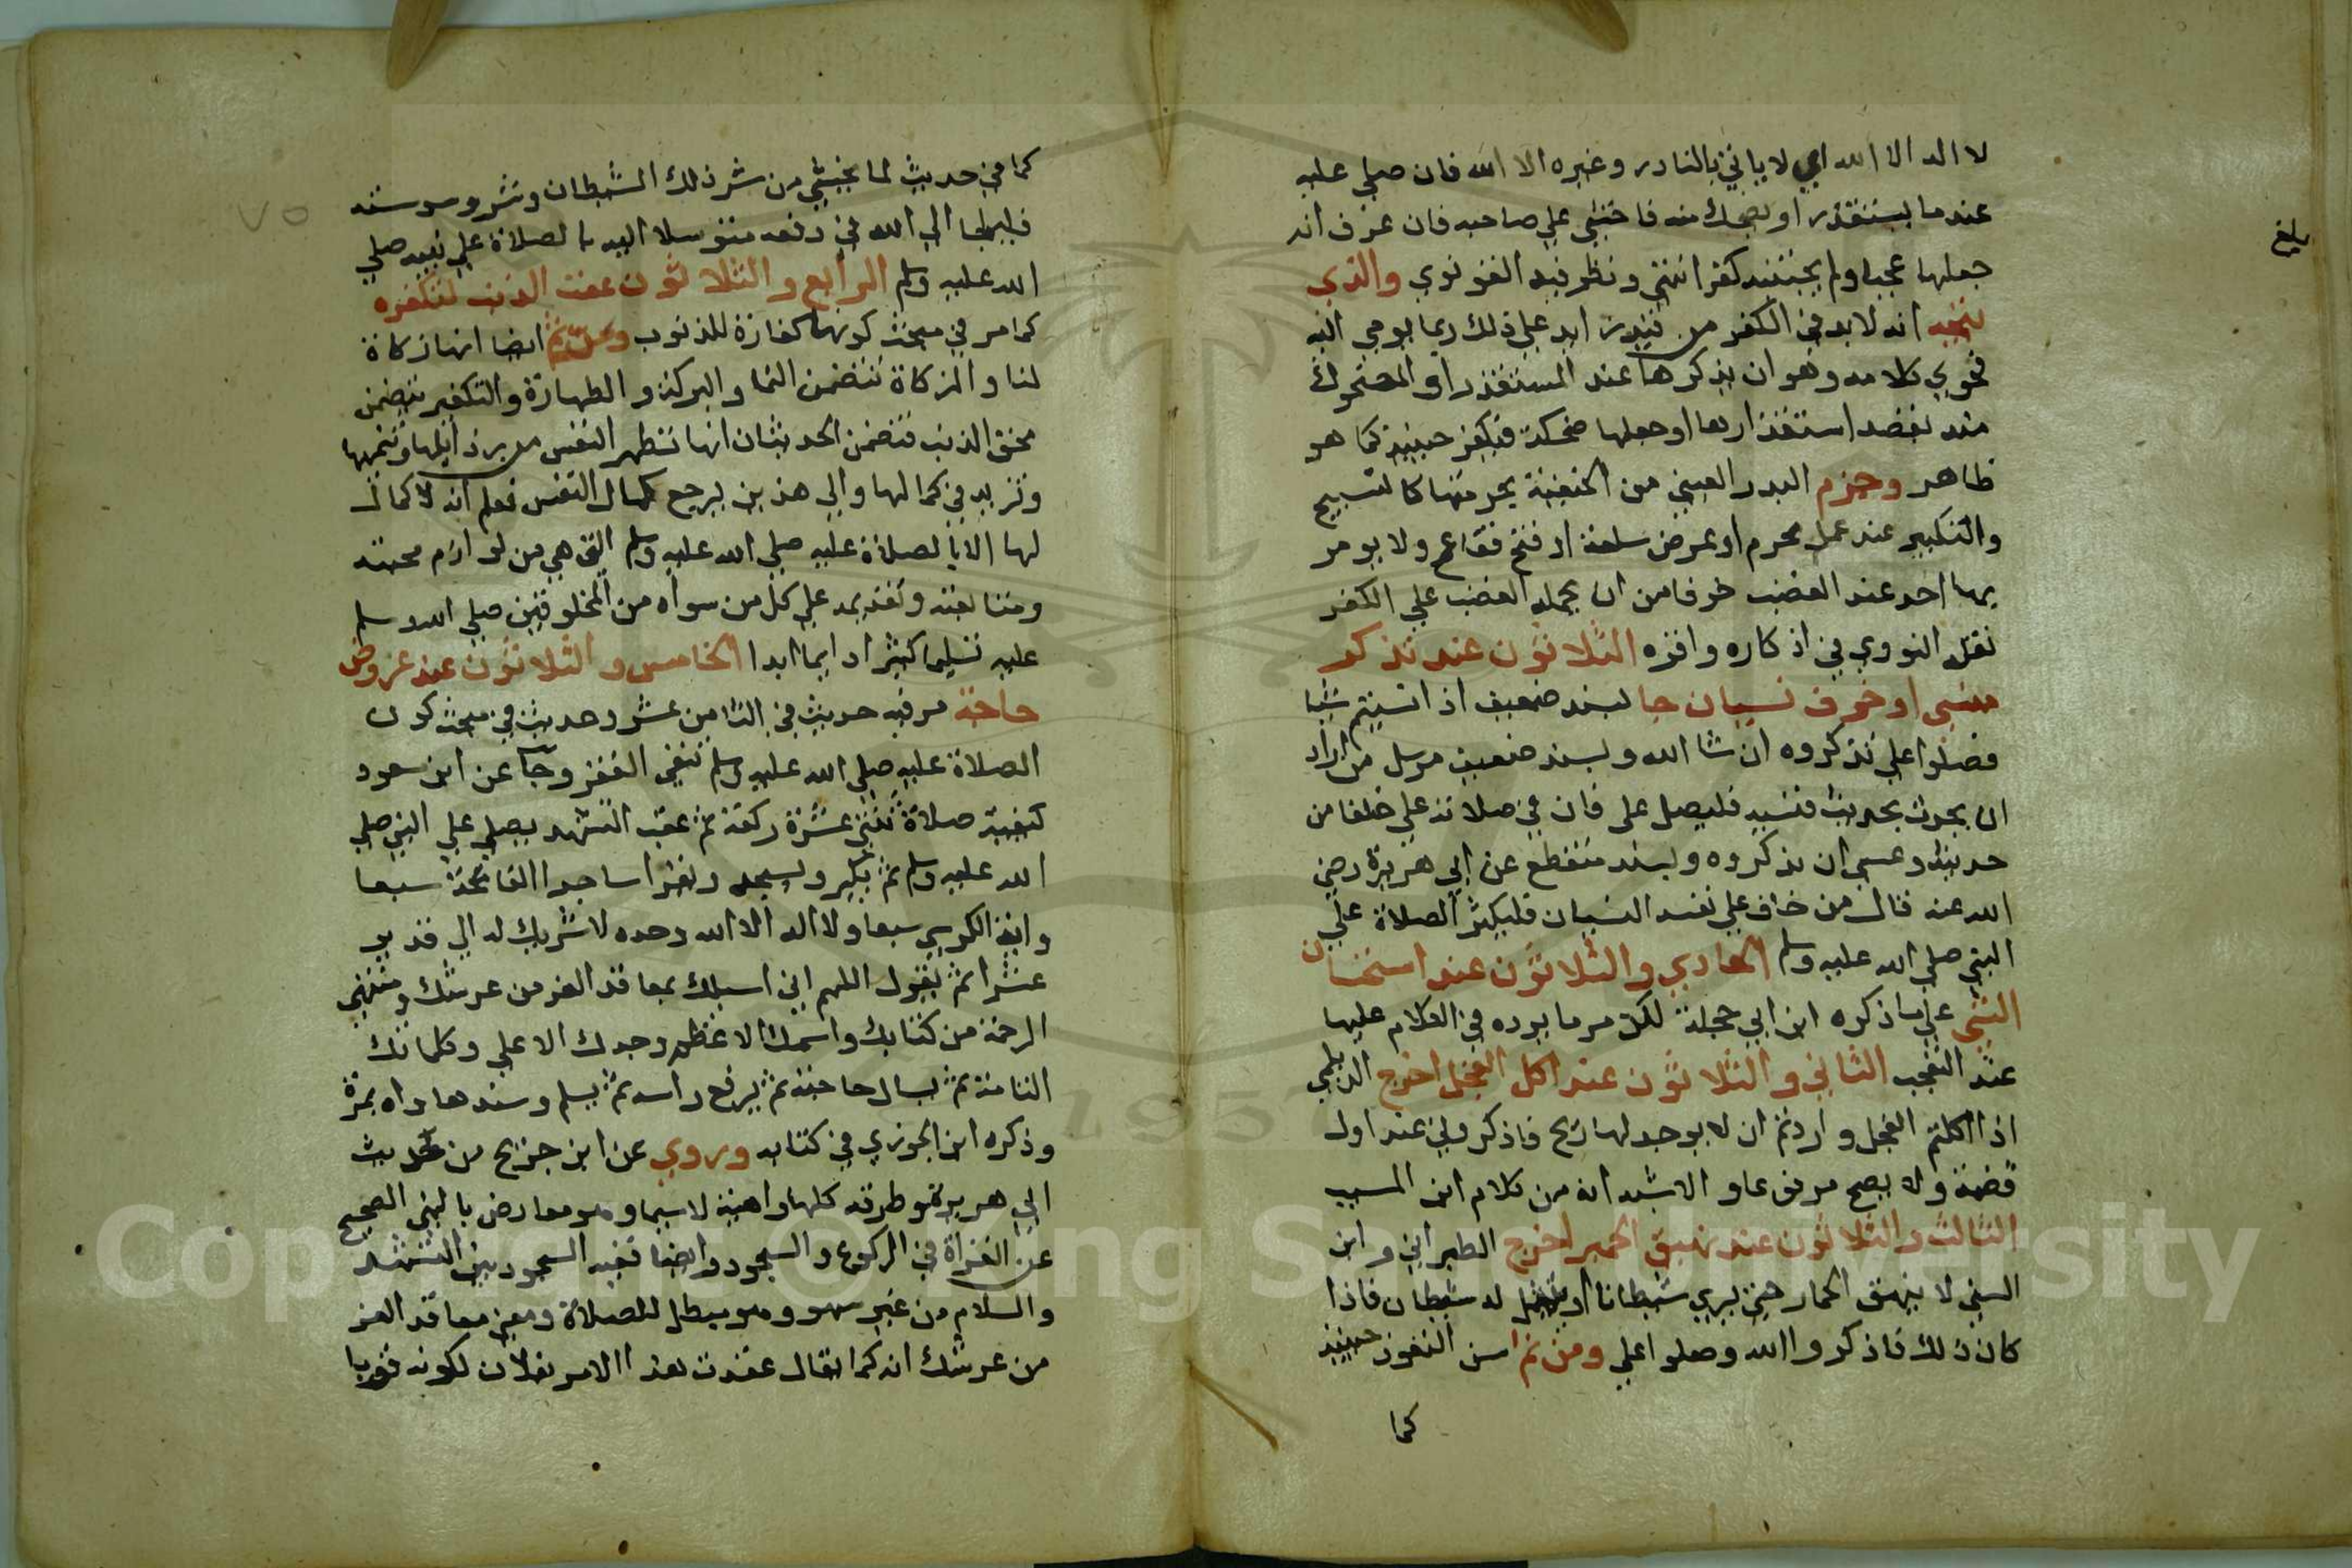 لا اله الا الله اي لا ياتي بالنادر وغيره الا الله فان صلي عليه
عند ما يستقذر او يضحك منه فاخشي علي صاحبه فان عرف انه
جعلها عجبا ولم يجتنبه كفر انتهي ونظر فيه القونوي والذي
يتجه انه لا بد في الكفر من قيد زايد علي ذلك ربما يومي اليه
فحوي كلامه وهو ان يذكرها عند المستقذر او المضحوك
منه بقصد استقذارها او جعلها ضحكة فيكفر حينيذ كما هو
ظاهر وجزم البدر العيني من الحنفية بحرمتها كالتسبيح
والتكبير عند عمل محرم او عرض سلعة او فتح فقاع ولا يومر
بها احد عند الغضب خوفا من ان يحمله الغضب علي الكفر
نقله النووي في اذكاره واقره الثلاثون عند تذكر
منسي او خوف نسيان جا بسند ضعيف اذا نسيتم شيا
فصلوا علي تذكروه ان شا الله وبسند ضعيف مرسل من اراد
ان يحدث بحديث فنسيه فليصل علي فان في صلاته علي خلفا من
حديثه وعسي ان يذكره وبسند منقطع عن ابي هريرة رضي
الله عنه قال من خاف علي نفسه النسيان فليكثر الصلاة علي
النبي صلي الله عليه وسلم الحادي والثلاثون عند استحسان
الشي علي ما ذكره ابن ابي حجلة لكن مر ما يرده في الكلام عليها
عند التعجب الثاني والثلاثون عند اكل الفجل اخرج الديلمي
اذا اكلتم الفجل واردتم ان لا يوجد لها ريح فاذكروني عند اول
قضمة ولا يصح مرفوعا والاشبه انه من كلام ابن المسيب
الثالث والثلاثون عند نهيق الحمير اخرج الطبراني وابن
السني لا ينهق الحمار حتي يري شيطانا او يتمثل له شيطان فاذا
كان ذلك فاذكروا الله وصلوا علي ومن ثم سن التعوذ حينيذ
كما
بلغ
٧٥
كما في حديث لما يخشي من شر ذلك الشيطان وشر وسوسته
فليلجا الي الله في دفعه متوسلا اليه بالصلاة علي نبيه صلي
الله عليه وسلم الرابع والثلاثون عقب الذنب لتكفره
كما مر في مبحث كونها كفارة للذنوب ومر ثم ايضا انها زكاة
لنا والزكاة تتضمن النما والبركة والطهارة والتكفير يتضمن
محق الذنب فتضمن الحديثان انها تطهر النفس من رذايلها وتنميها
وتزيد في كمالها والي هذين يرجع كمال النفس فعلم انه لا كمال
لها الا بالصلاة عليه صلي الله عليه وسلم التي هي من لوازم محبته
ومتابعته وتقديمه علي كل من سواه من المخلوقين صلي الله وسلم
عليه تسليما كثيرا دايما ابدا الخامس والثلاثون عند عروض
حاجة مر فيه حديث في الثامن عشر وحديث في مبحث كون
الصلاة عليه صلي الله عليه وسلم تنفي الفقر وجا عن ابن مسعود
كيفية صلاة ثنتي عشرة ركعة ثم عقب التشهد يصلي علي النبي صلي
الله عليه وسلم ثم يكبر ويسجد ويقرا ساجدا الفاتحة سبعا
واية الكرسي سبعا ولا اله الا الله وحده لا شريك له الي قدير
عشرا ثم يقول اللهم اني اسيلك بمعاقد العز من عرشك ومنتهي
الرحمة من كتابك واسمك الاعظم وجدك الاعلي وكلماتك
التامة ثم يسال حاجته ثم يرفع راسه ثم يسلم وسندها واه بمرة
وذكره ابن الجوزي في كتابه وروي عن ابن جريج من حديث
ابي هريرة وطرقه كلها واهية لا سيما وهو معارض بالنهي الصحيح
عن القراة في الركوع والسجود وايضا ففيه السجود بين التشهد
والسلام من غير سهو وهو مبطل للصلاة ومعني معاقد العز
من عرشك انه كما يقال عقدت هذا الامر بفلان لكونه قويا